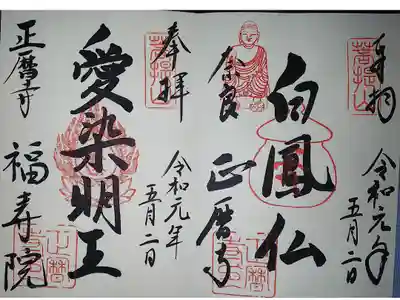 奉拝
菩提山
令和元年
五月二日
白鳳仏
奈良
正暦寺
奉拝
菩提山
令和元年
五月二日
愛染明王
正暦寺
福寿院